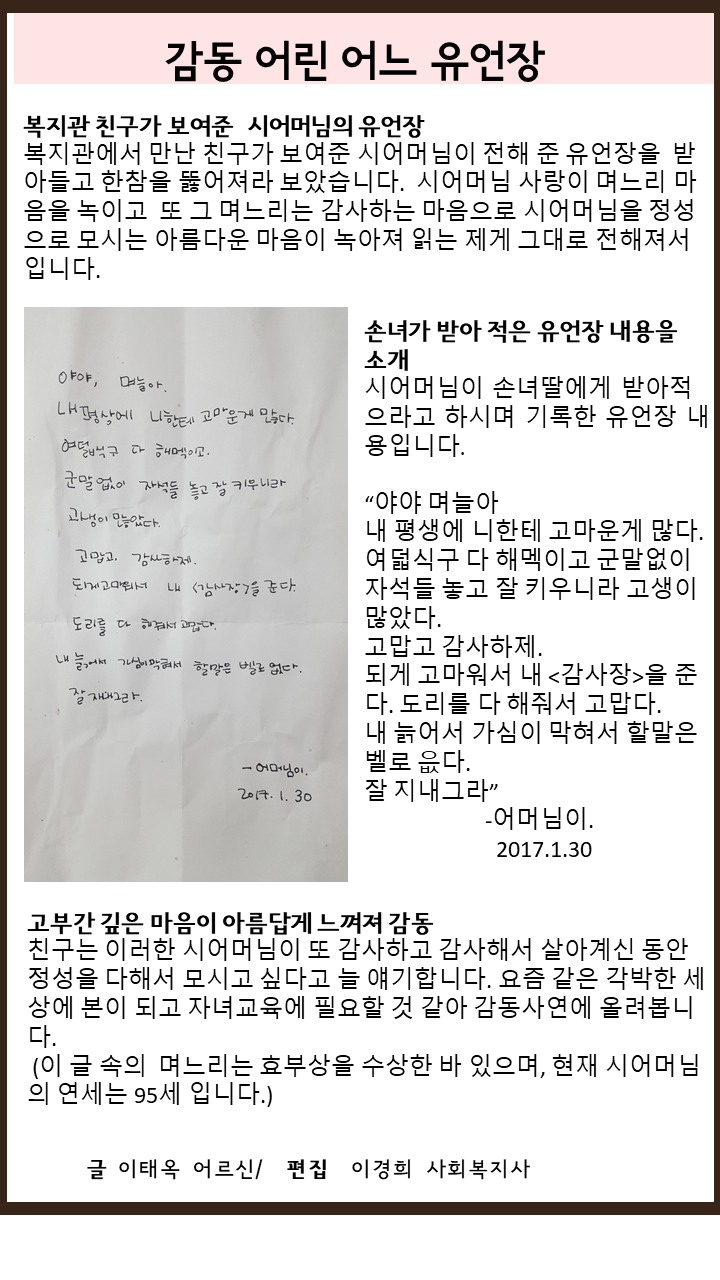 감동 어린 어느 유언장
복지관 친구가 보여준 시어머님의 유언장
복지관에서 만난 친구가 보여준 시어머님이 전해 준 유언장을 받
아들고 한참을 뚫어져라 보았습니다. 시어머님 사랑이 며느리 마
음을 녹이고 또 그 며느리는 감사하는 마음으로 시어머님을 정성
으로 모시는 아름다운 마음이 녹아져 읽는 제게 그대로 전해져서
입니다.
야야, 며늘아.
내 평상에 니한테 고마운게 많다.
여덜식구 다 해멕이고.
군말없이 자석들 놓고 잘 키우니라
고생이 많았다.
고맙고, 감사하제.
되게고마워서 내 <감사장>을 준다.
도리를 다 해줘서 고맙다.
내 늙어서 가심이막혀서 할말은 벨로 없다.
잘 지내그라.
- 어머님이.
2017. 1. 30
손녀가 받아 적은 유언장 내용을
소개
시어머님이 손녀딸에게 받아적
으라고 하시며 기록한 유언장 내
용입니다.
“야야 며늘아
내 평생에 니한테 고마운게 많다.
여덟식구 다 해멕이고 군말없이
자석들 놓고 잘 키우니라 고생이
많았다.
고맙고 감사하제.
되게 고마워서 내 <감사장>을 준
다. 도리를 다 해줘서 고맙다.
내 늙어서 가심이 막혀서 할말은
벨로 읎다.
잘 지내그라”
-어머님이.
2017.1.30
고부간 깊은 마음이 아름답게 느껴져 감동
친구는 이러한 시어머님이 또 감사하고 감사해서 살아계신 동안
정성을 다해서 모시고 싶다고 늘 얘기합니다. 요즘 같은 각박한 세
상에 본이 되고 자녀교육에 필요할 것 같아 감동사연에 올려봅니
다.
(이 글 속의 며느리는 효부상을 수상한 바 있으며, 현재 시어머님
의 연세는 95세 입니다.)
글 이태옥 어르신/ 편집 이경희 사회복지사